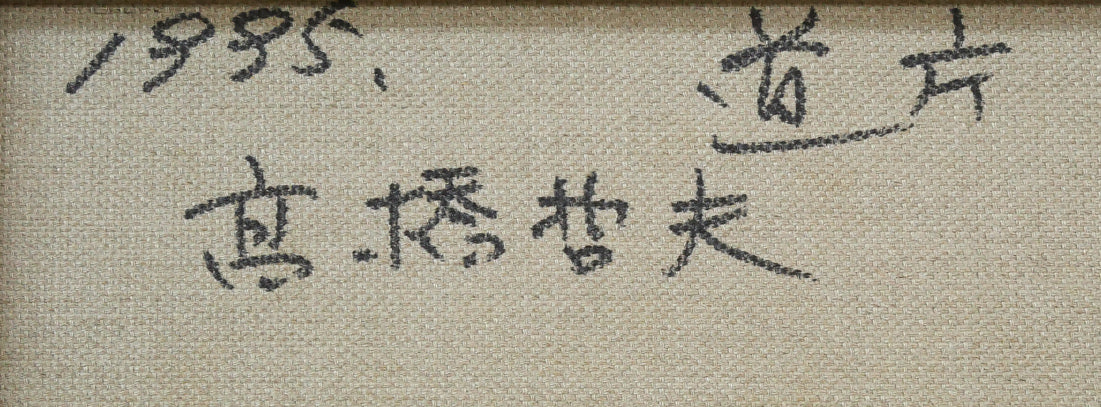 1995. 道片
高橋哲夫